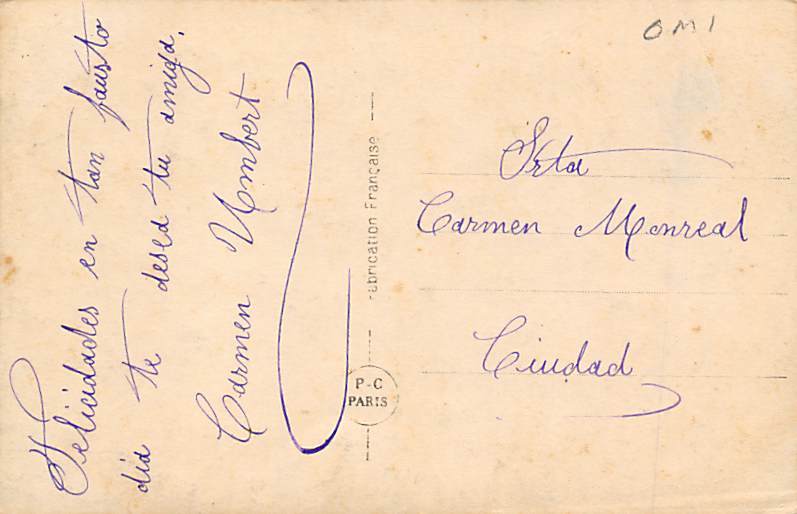 Felicidades en tan fausto
dia te desea tu amiga.
Carmen Umbert
Fabrication Française
P-C
PARIS
OMI
Srta
Carmen Monreal
Ciudad